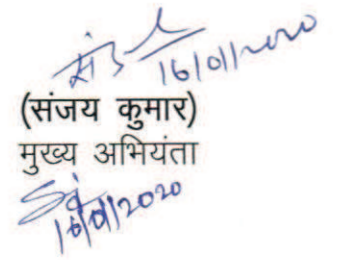 16/01/2020
(संजय कुमार)
मुख्य अभियंता
16/01/2020